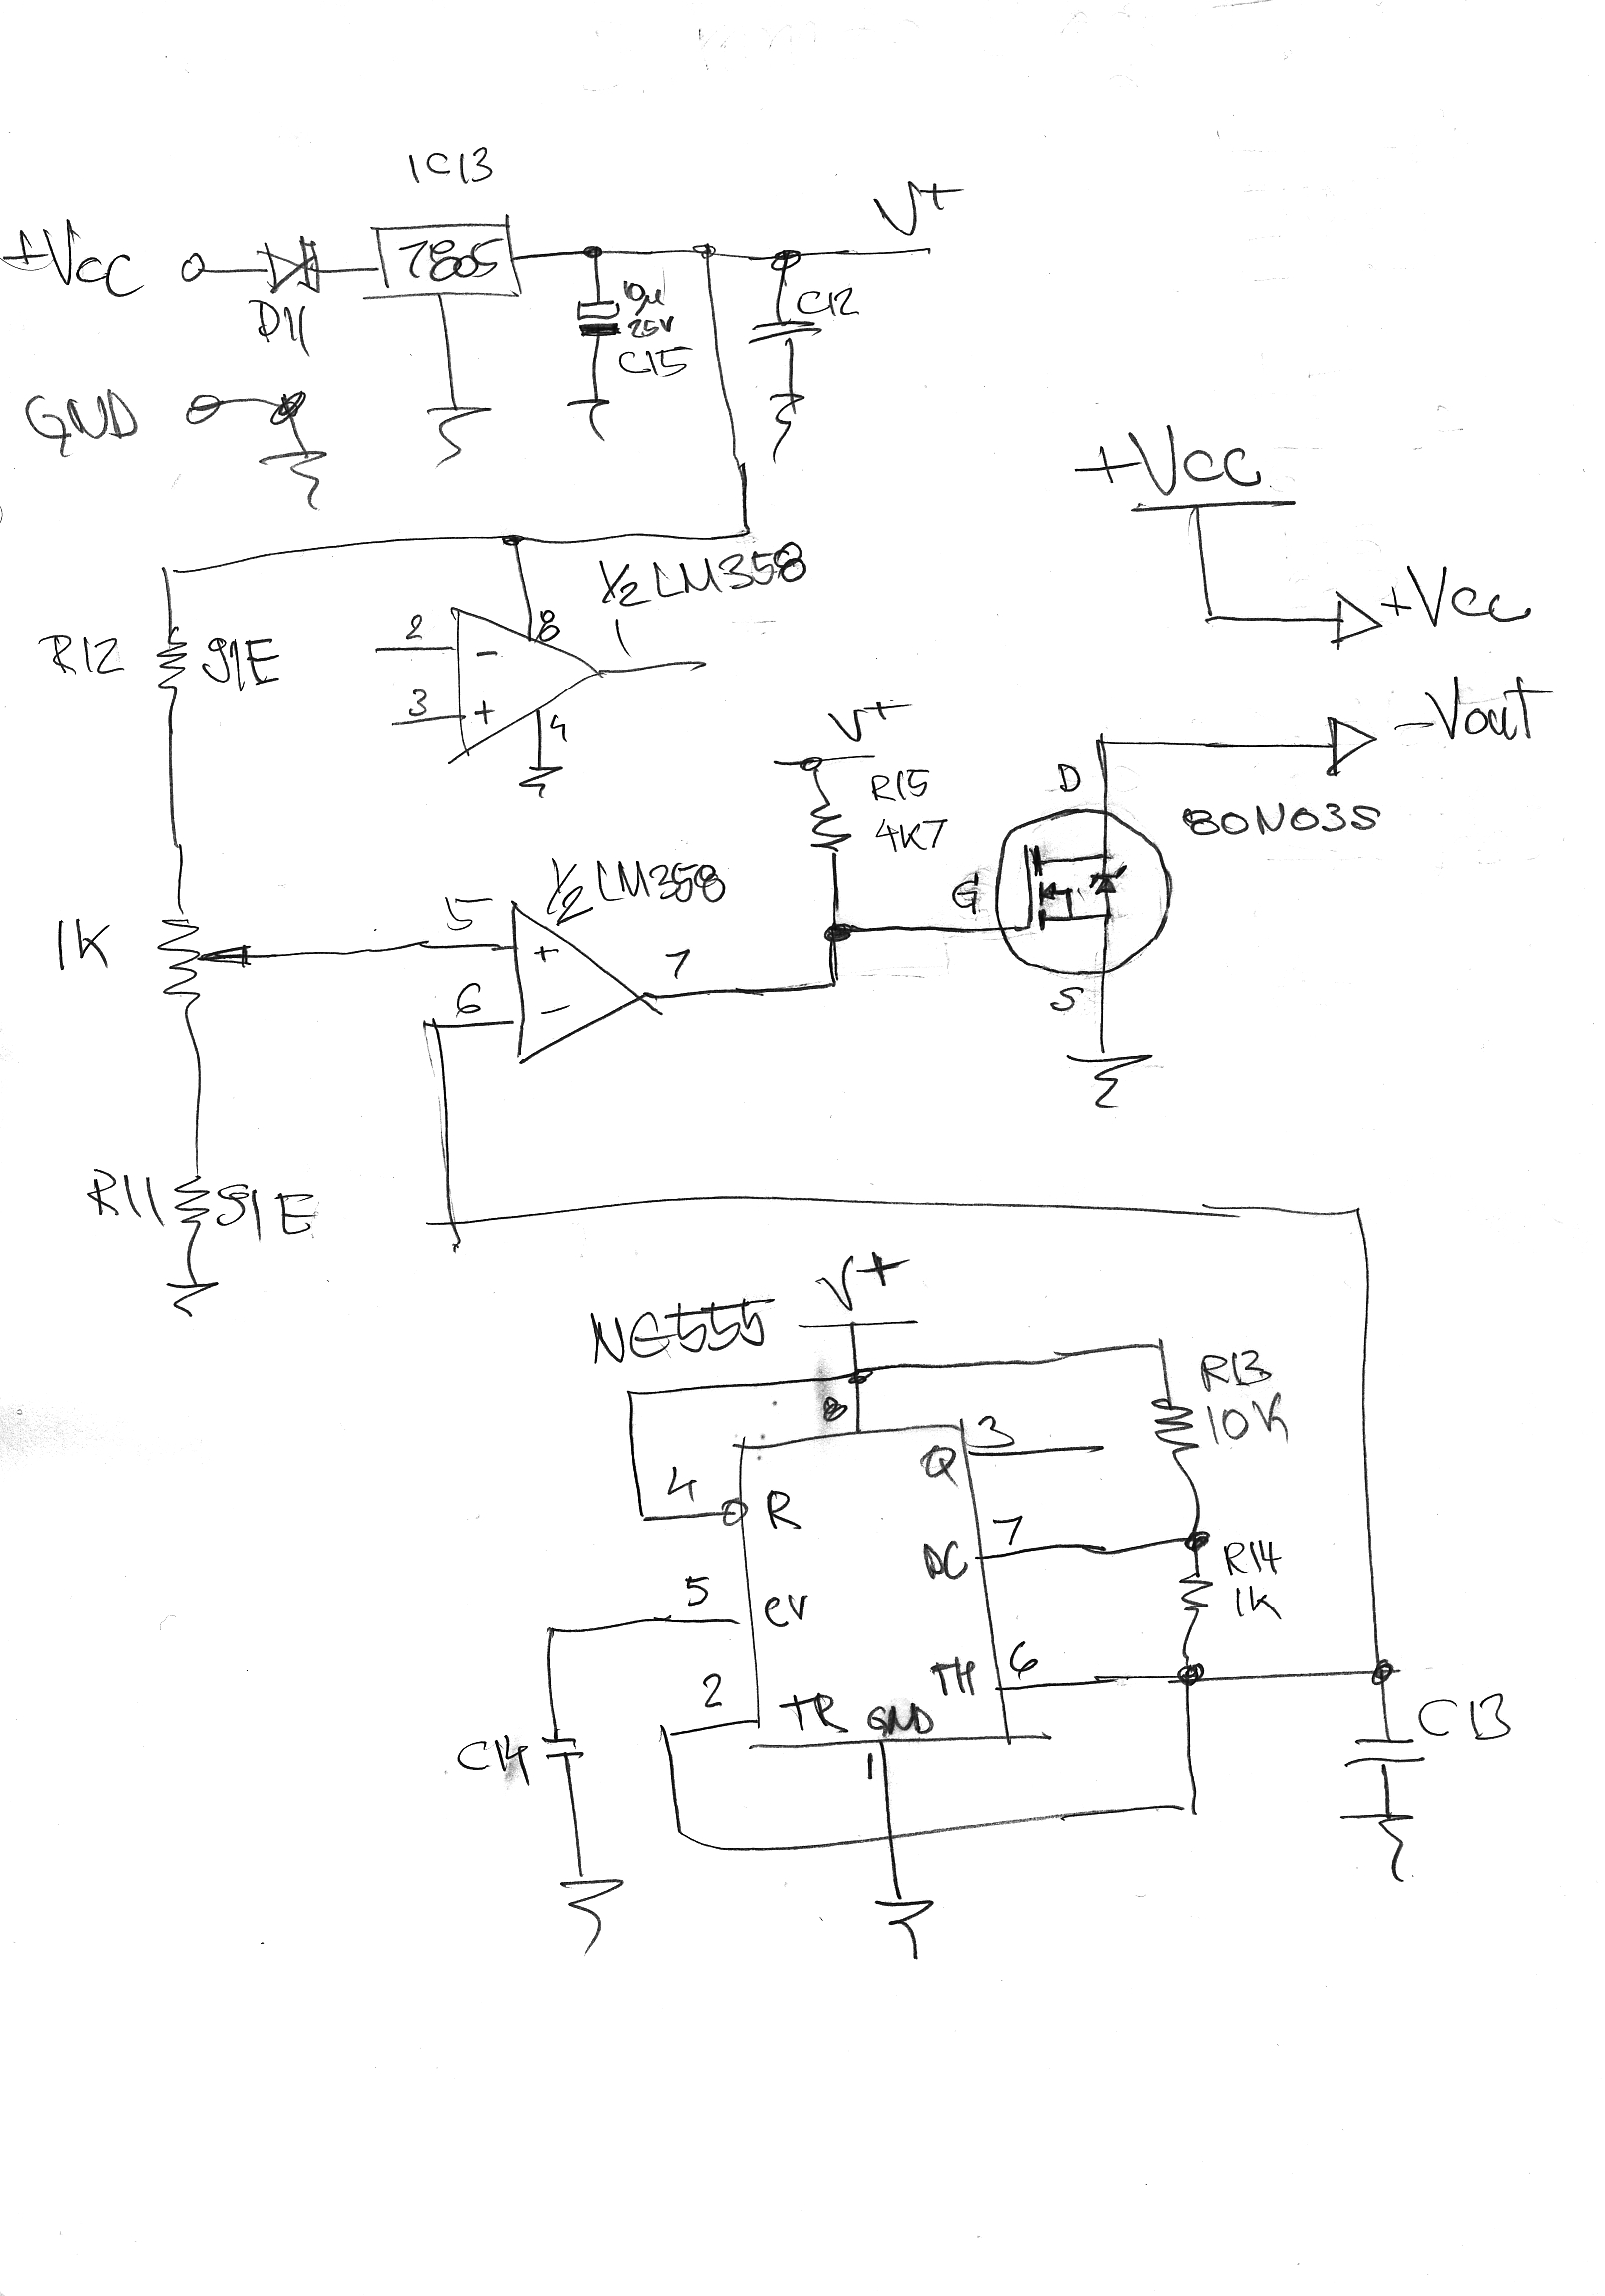 IC13
+Vcc
7805
V+
D11
10µ
25V
C15
C12
GND
+Vcc
+Vcc
½ LM358
2
-
8
1
3
+
4
R12
91E
-Vout
V+
R15
4K7
D
80N03S
G
S
½ LM358
5
+
7
6
-
1K
R11
91E
V+
NE555
R13
10K
8
3
Q
4
R
7
DC
R14
1K
5
CV
6
TH
2
TR
GND
1
C14
C13